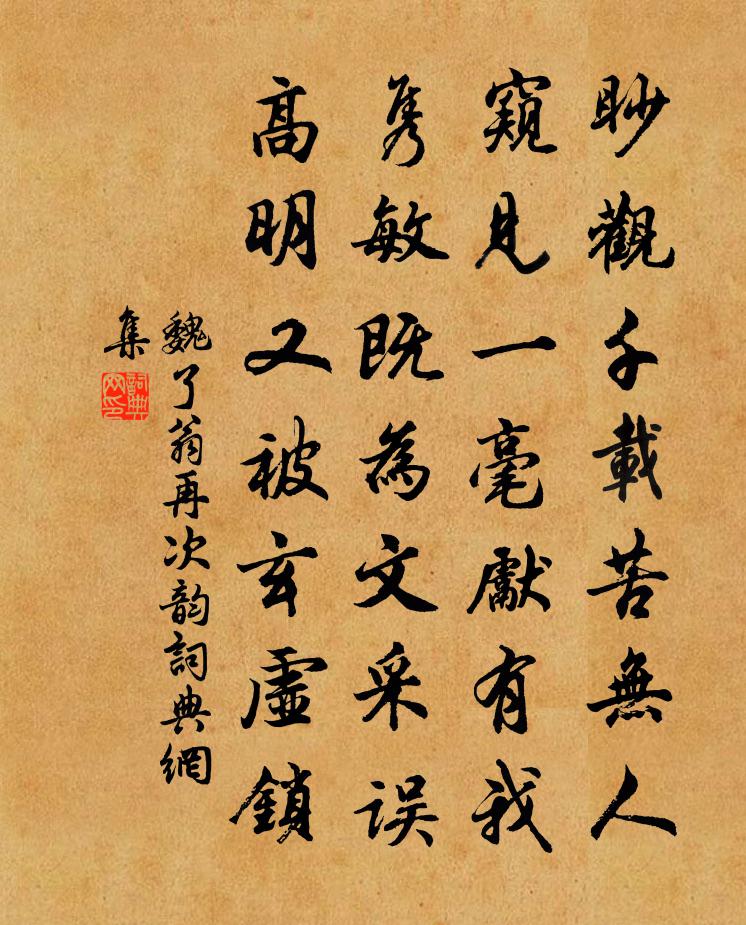 眇觀千載苦無人
窺見一毫獻有我
隽敏既為文采误
高明又被玄虛鎖
魏了翁再次韵詞典網
集
詞典网印